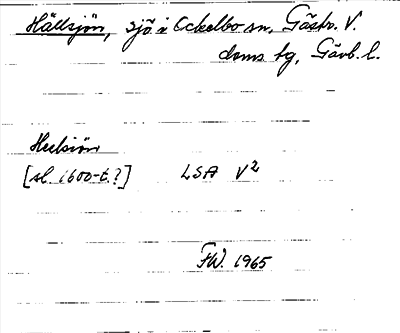 Hällsjön, sjö i Ockelbo sn, Gästr. V.
doms tg, Gävb. l.
Helsiön
[sl. 1600-t.?] LSA V2
FW. 1965